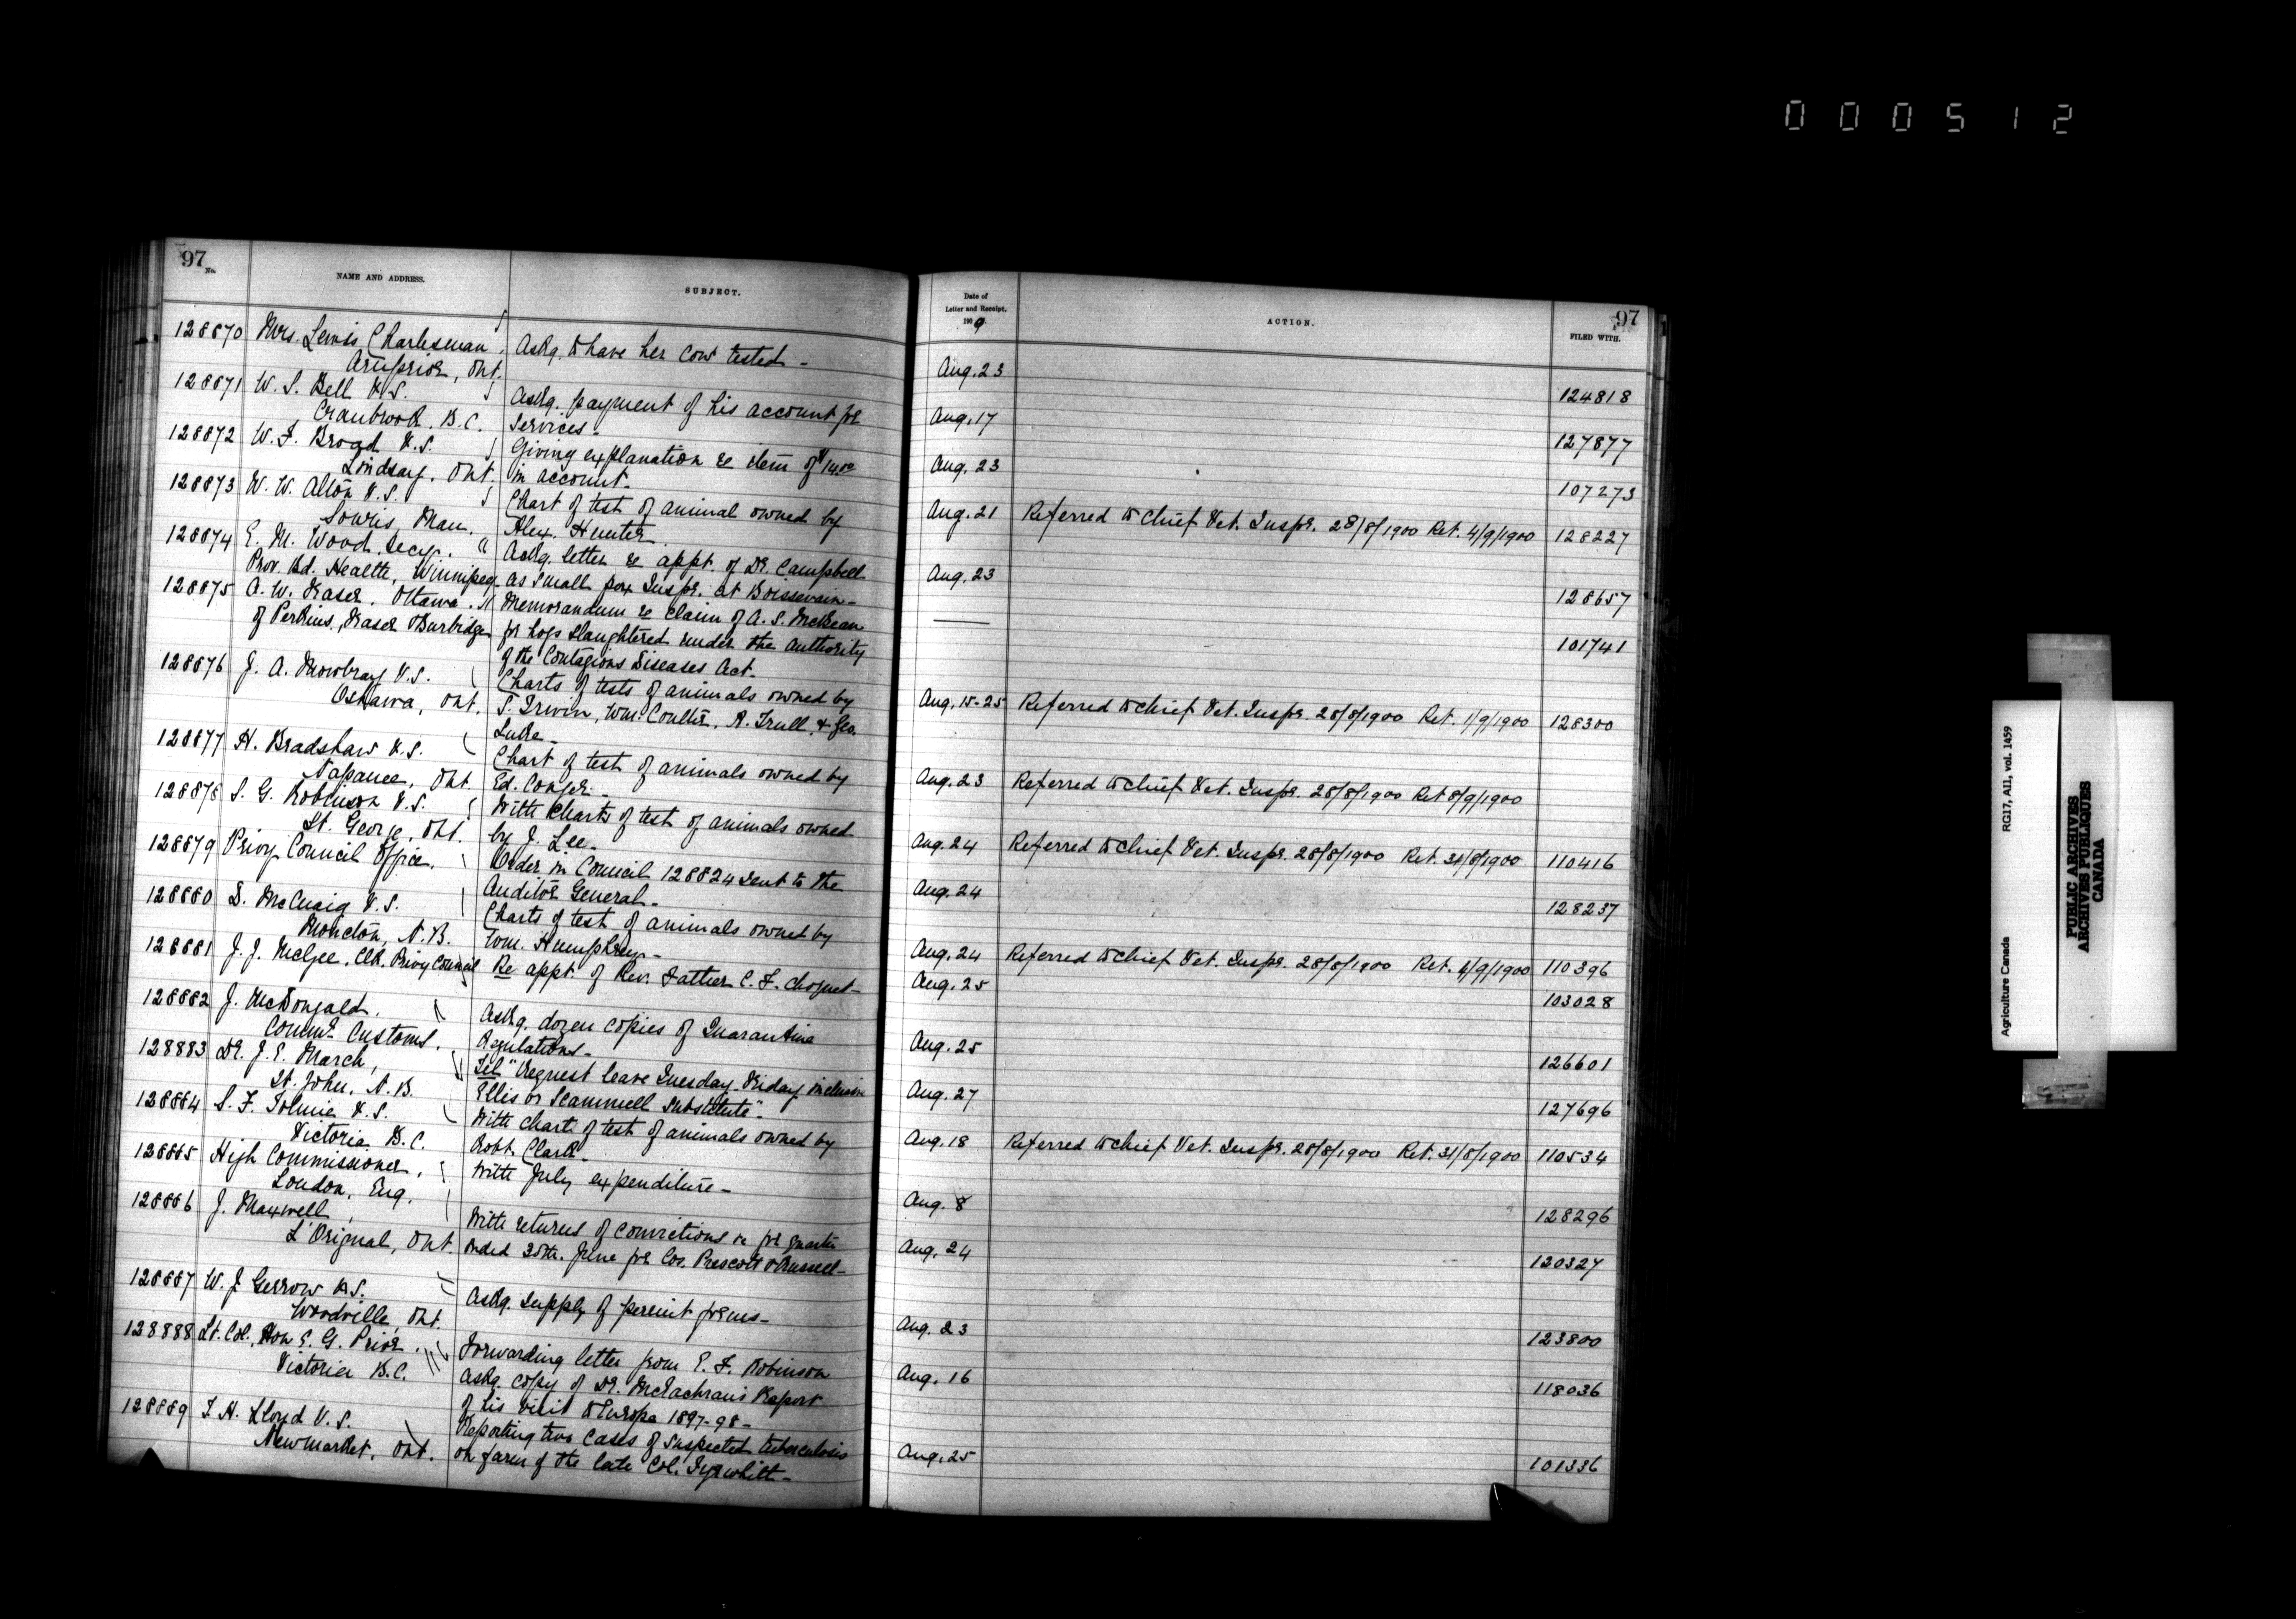 000512
97
No.
NAME AND ADDRESS.
SUBJECT.
128870 Mrs. Lewis Charlesman, Askg. to have her cow tested -
Arnprior, Ont.
128871 W. S. Bell V.S. Askg. payment of his account for
Cranbrook, B.C. Services -
128872 W. F. Broad V.S. Giving explanation re item of
Lindsay, Ont. in account -
128873 W. W. Alton V.S. Chart of test of animal owned by
Souris, Man. Alex. Hunter
128874 E. M. Wood, Secy. Askg. letter re appt. of Dr. Campbell
Prov. Bd. Health, Winnipeg. as small pox Inspr. at Boissevain -
128875 A. W. Fraser, Ottawa. Memorandum re claim of A. S. McBean
of Perkins, Fraser & Burbidge for hogs slaughtered under the authority
of the Contagious Diseases Act -
128876 J. A. Mowbray V.S. Charts of tests of animals owned by
Oshawa, Ont. S. Irwin, Wm. Coulter, A. Trull, & Geo.
Luke -
128877 H. Bradshaw V.S. Chart of test of animals owned by
Napanee, Ont. Ed. Conger -
128878 S. G. Robinson V.S. With Charts of test of animals owned
St. George, Ont. by J. Lee -
128879 Privy Council Office. Order in Council 128824 sent to the
Auditor General -
128880 D. McCuaig V.S. Charts of test of animals owned by
Moncton, N.B. Wm. Humphrey -
128881 J. J. McGee, Clk. Privy Council Re appt. of Rev. Father C. F. Choquet -
128882 J. McDougald. Askg. dozen copies of Quarantine
Commr. Customs. Regulations -
128883 Dr. J. E. March, Tel "Request leave Tuesday-Friday inclusive
St. John, N.B. Ellis or Scammell substitute" -
128884 S. F. Tolmie V.S. With charts of test of animals owned by
Victoria B.C. Robt. Clark -
128885 High Commissioner, With July expenditure -
London, Eng.
128886 J. Maxwell, With returns of convictions for quarter
L'Orignal, Ont. ended 30th. June for Cos. Prescott & Russell -
128887 W. J Gerrow V.S. Askg. supply of permit forms -
Woodville, Ont.
128888 Lt. Col. Hon E. G. Prior. Forwarding letter from E. F. Robinson
Victoria B.C. askg. copy of Dr. McEachran's Report
of his visit to Europe 1897-98 -
128889 T. H. Lloyd V.S. Reporting two cases of suspected tuberculosis
Newmarket, Ont. on farm of the late Col. Tyrwhitt -
Date of
Letter and Receipt.
190
ACTION.
97
FILED WITH.
Aug. 23 124818
Aug. 17 127877
Aug. 23 107273
Aug. 21 Referred to Chief Vet. Inspr. 28/8/1900 Ret. 4/9/1900 128227
Aug. 23 128657
101741
Aug. 15-25 Referred to Chief Vet. Inspr. 28/8/1900 Ret. 1/9/1900 128300
Aug. 23 Referred to Chief Vet. Inspr. 28/8/1900 Ret 8/9/1900
Aug. 24 Referred to Chief Vet. Inspr. 28/8/1900 Ret. 31/8/1900 110416
Aug. 24 128237
Aug. 24 Referred to Chief Vet. Inspr. 28/8/1900 Ret. /9/1900 110396
Aug. 25 103028
Aug. 25 126601
Aug. 27 127696
Aug. 18 Referred to Chief Vet. Inspr. 28/8/1900 Ret. 31/8/1900 110534
Aug. 8 128296
Aug. 24 120327
Aug. 23 123800
Aug. 16 118036
Aug. 25 101336
Agriculture Canada RG17, AII, vol. 1459
PUBLIC ARCHIVES
ARCHIVES PUBLIQUES
CANADA